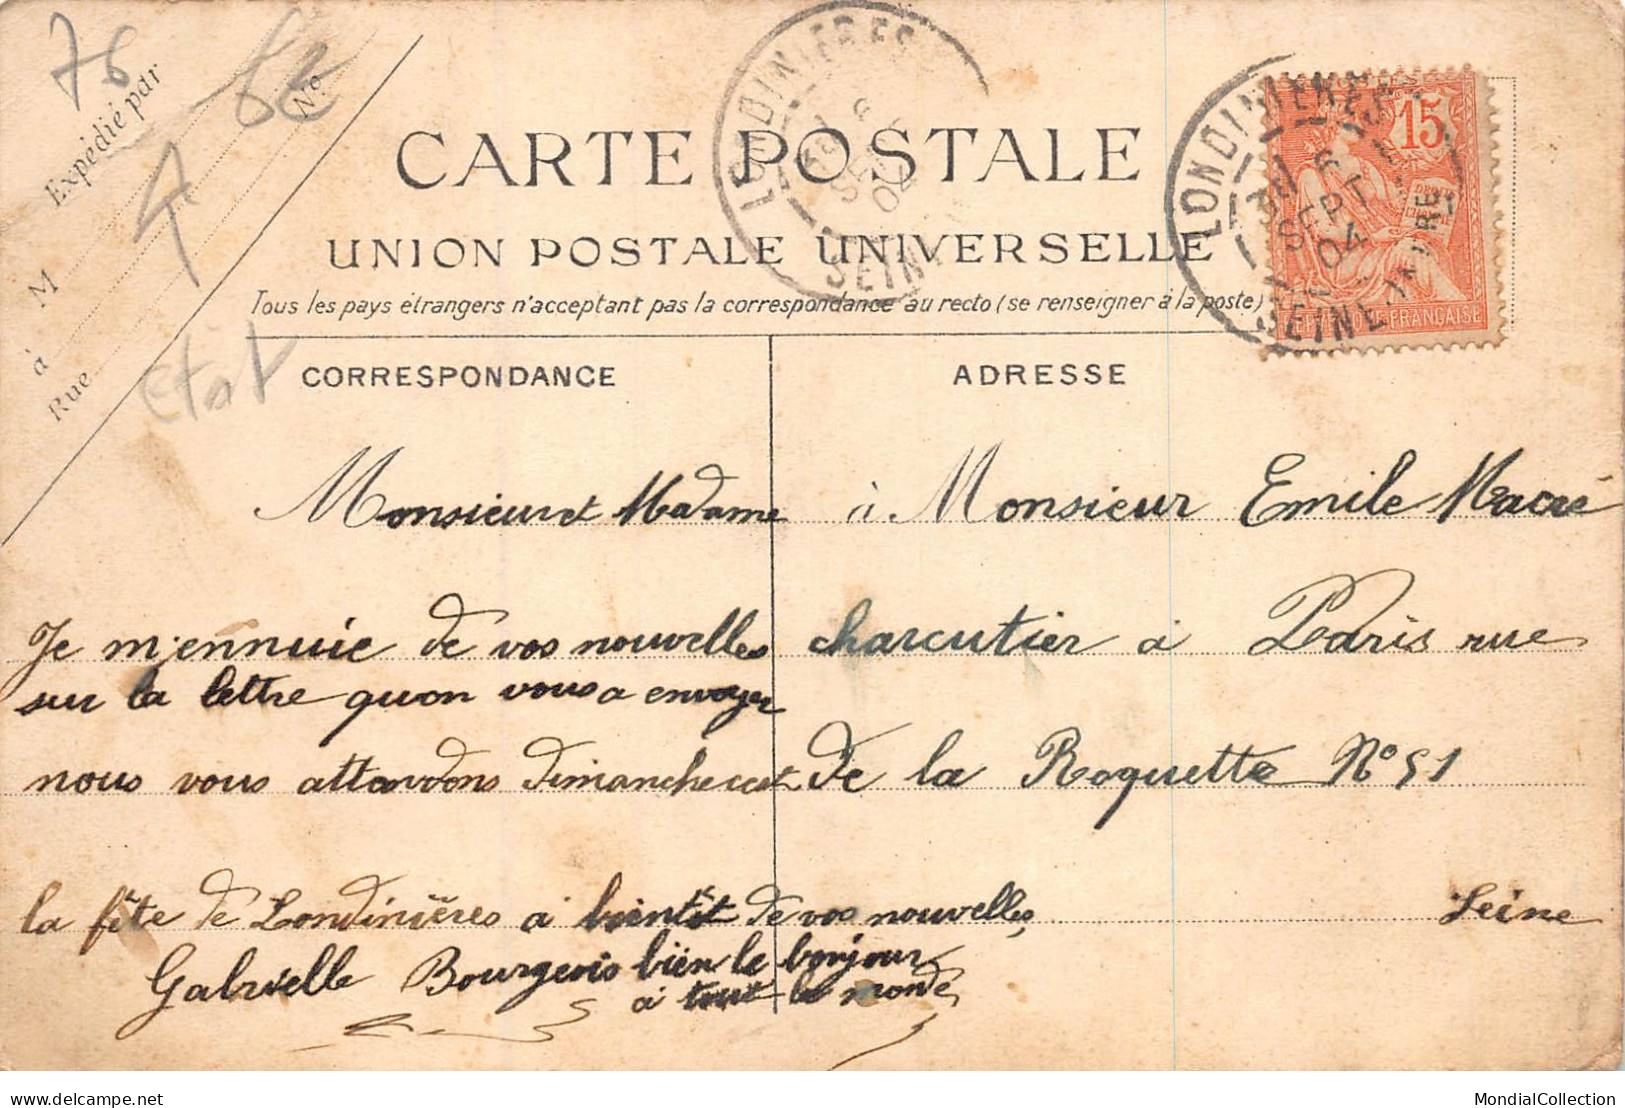 76
62
Expédié par
No
M
à
Rue
état
CARTE POSTALE
UNION POSTALE UNIVERSELLE
Tous les pays étrangers n'acceptent pas la correspondance au recto (se renseigner à la poste)
LONDINIERES
6
SEPT
04
SEINE
LONDINIERES
6
SEPT
04
SEINE-INFRE
15
REPUBLIQUE FRANÇAISE
CORRESPONDANCE
Monsieur et Madame
Je m'ennuie de vos nouvelles
sur la lettre qu'on vous a envoyer
nous vous attandons dimanche c'est
la fête de Londinières a bientôt de vos nouvelles
Gabrielle Bourgeois bien le bonjour
a tout le monde
ADRESSE
à Monsieur Emile Macré
charcutier à Paris rue
de la Roquette N° 51
Seine
www.delcampe.net
MondialCollection